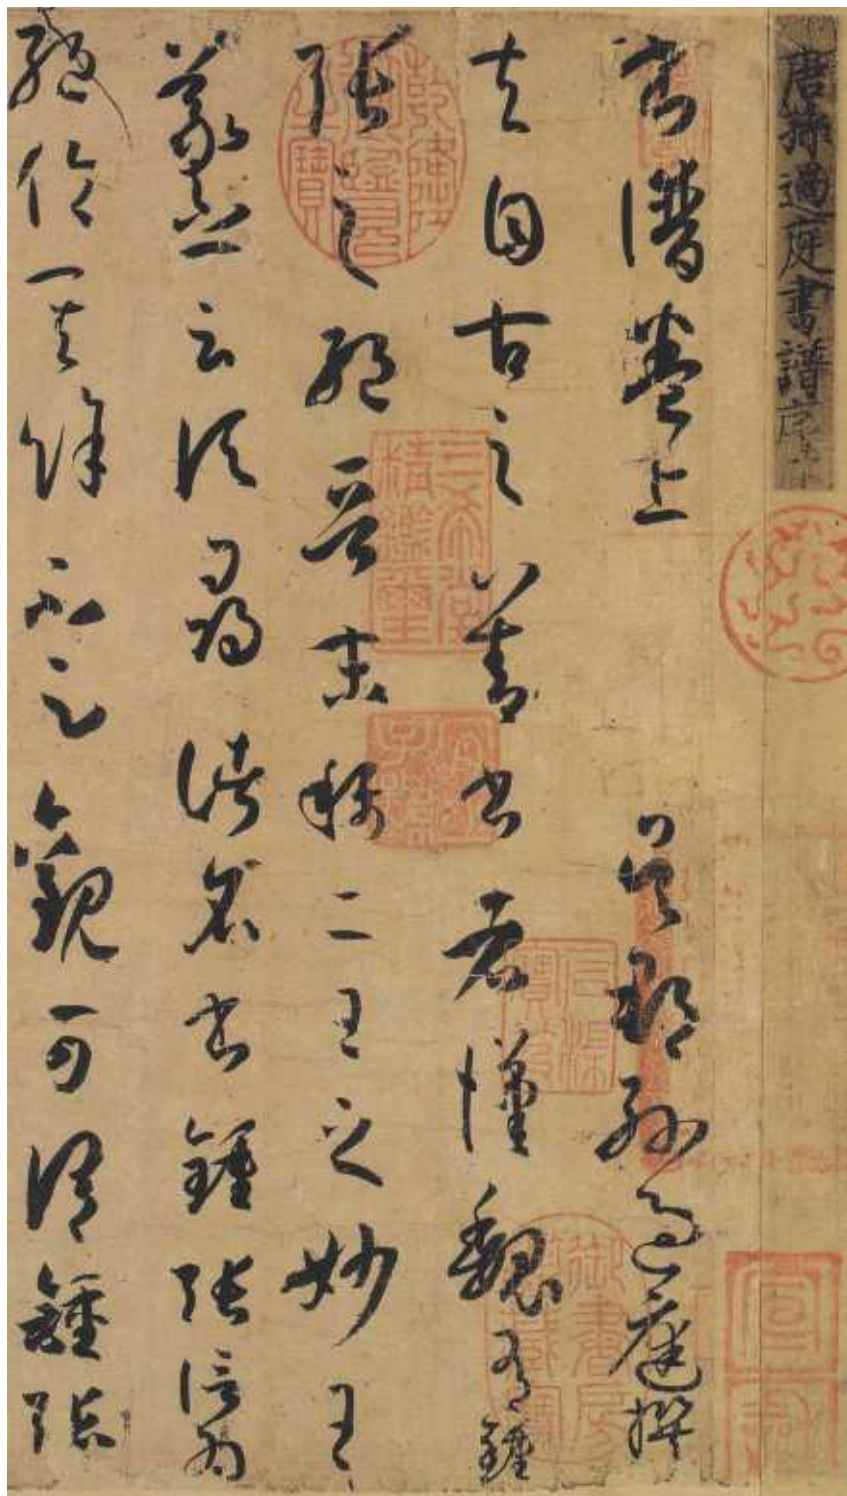 唐孫過庭書譜序
書譜卷上 吳郡孫過庭撰
夫自古之善書者漢魏有鍾
張之絕晉末稱二王之妙王
羲之云頃尋諸名書鍾張信為
絕倫其餘不足觀可謂鍾張
乾隆御覽之寶
三希堂精鑑璽
宜子孫